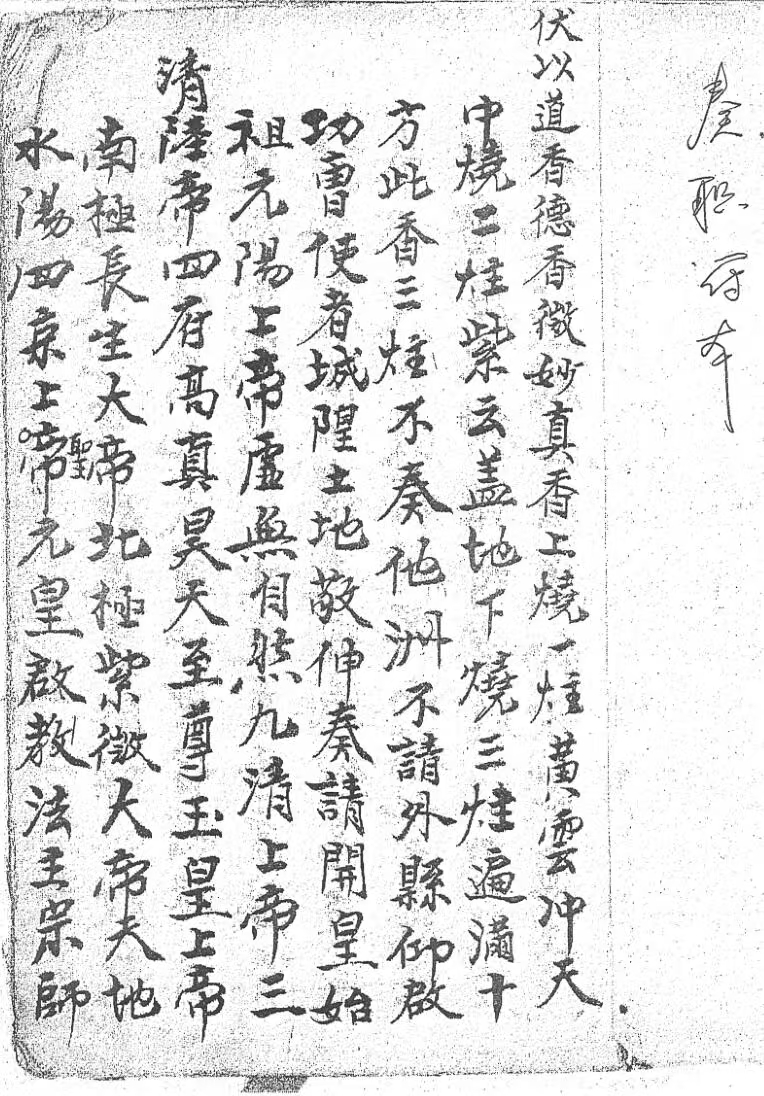 奏職符本
伏以道香德香微妙真香上燒一炷黄雲冲天
中燒二炷紫云盖地下燒三炷遍滿十
方此香三炷不奏他洲不請外縣仰啟
功曹使者城隍土地敬伸奏請開皇始
祖元陽上帝虚無自然九清上帝三
清陸帝四府高真昊天至尊玉皇上帝
南極長生大帝北極紫微大帝天地
水陽四京上帝聖元皇啟教法王宗師